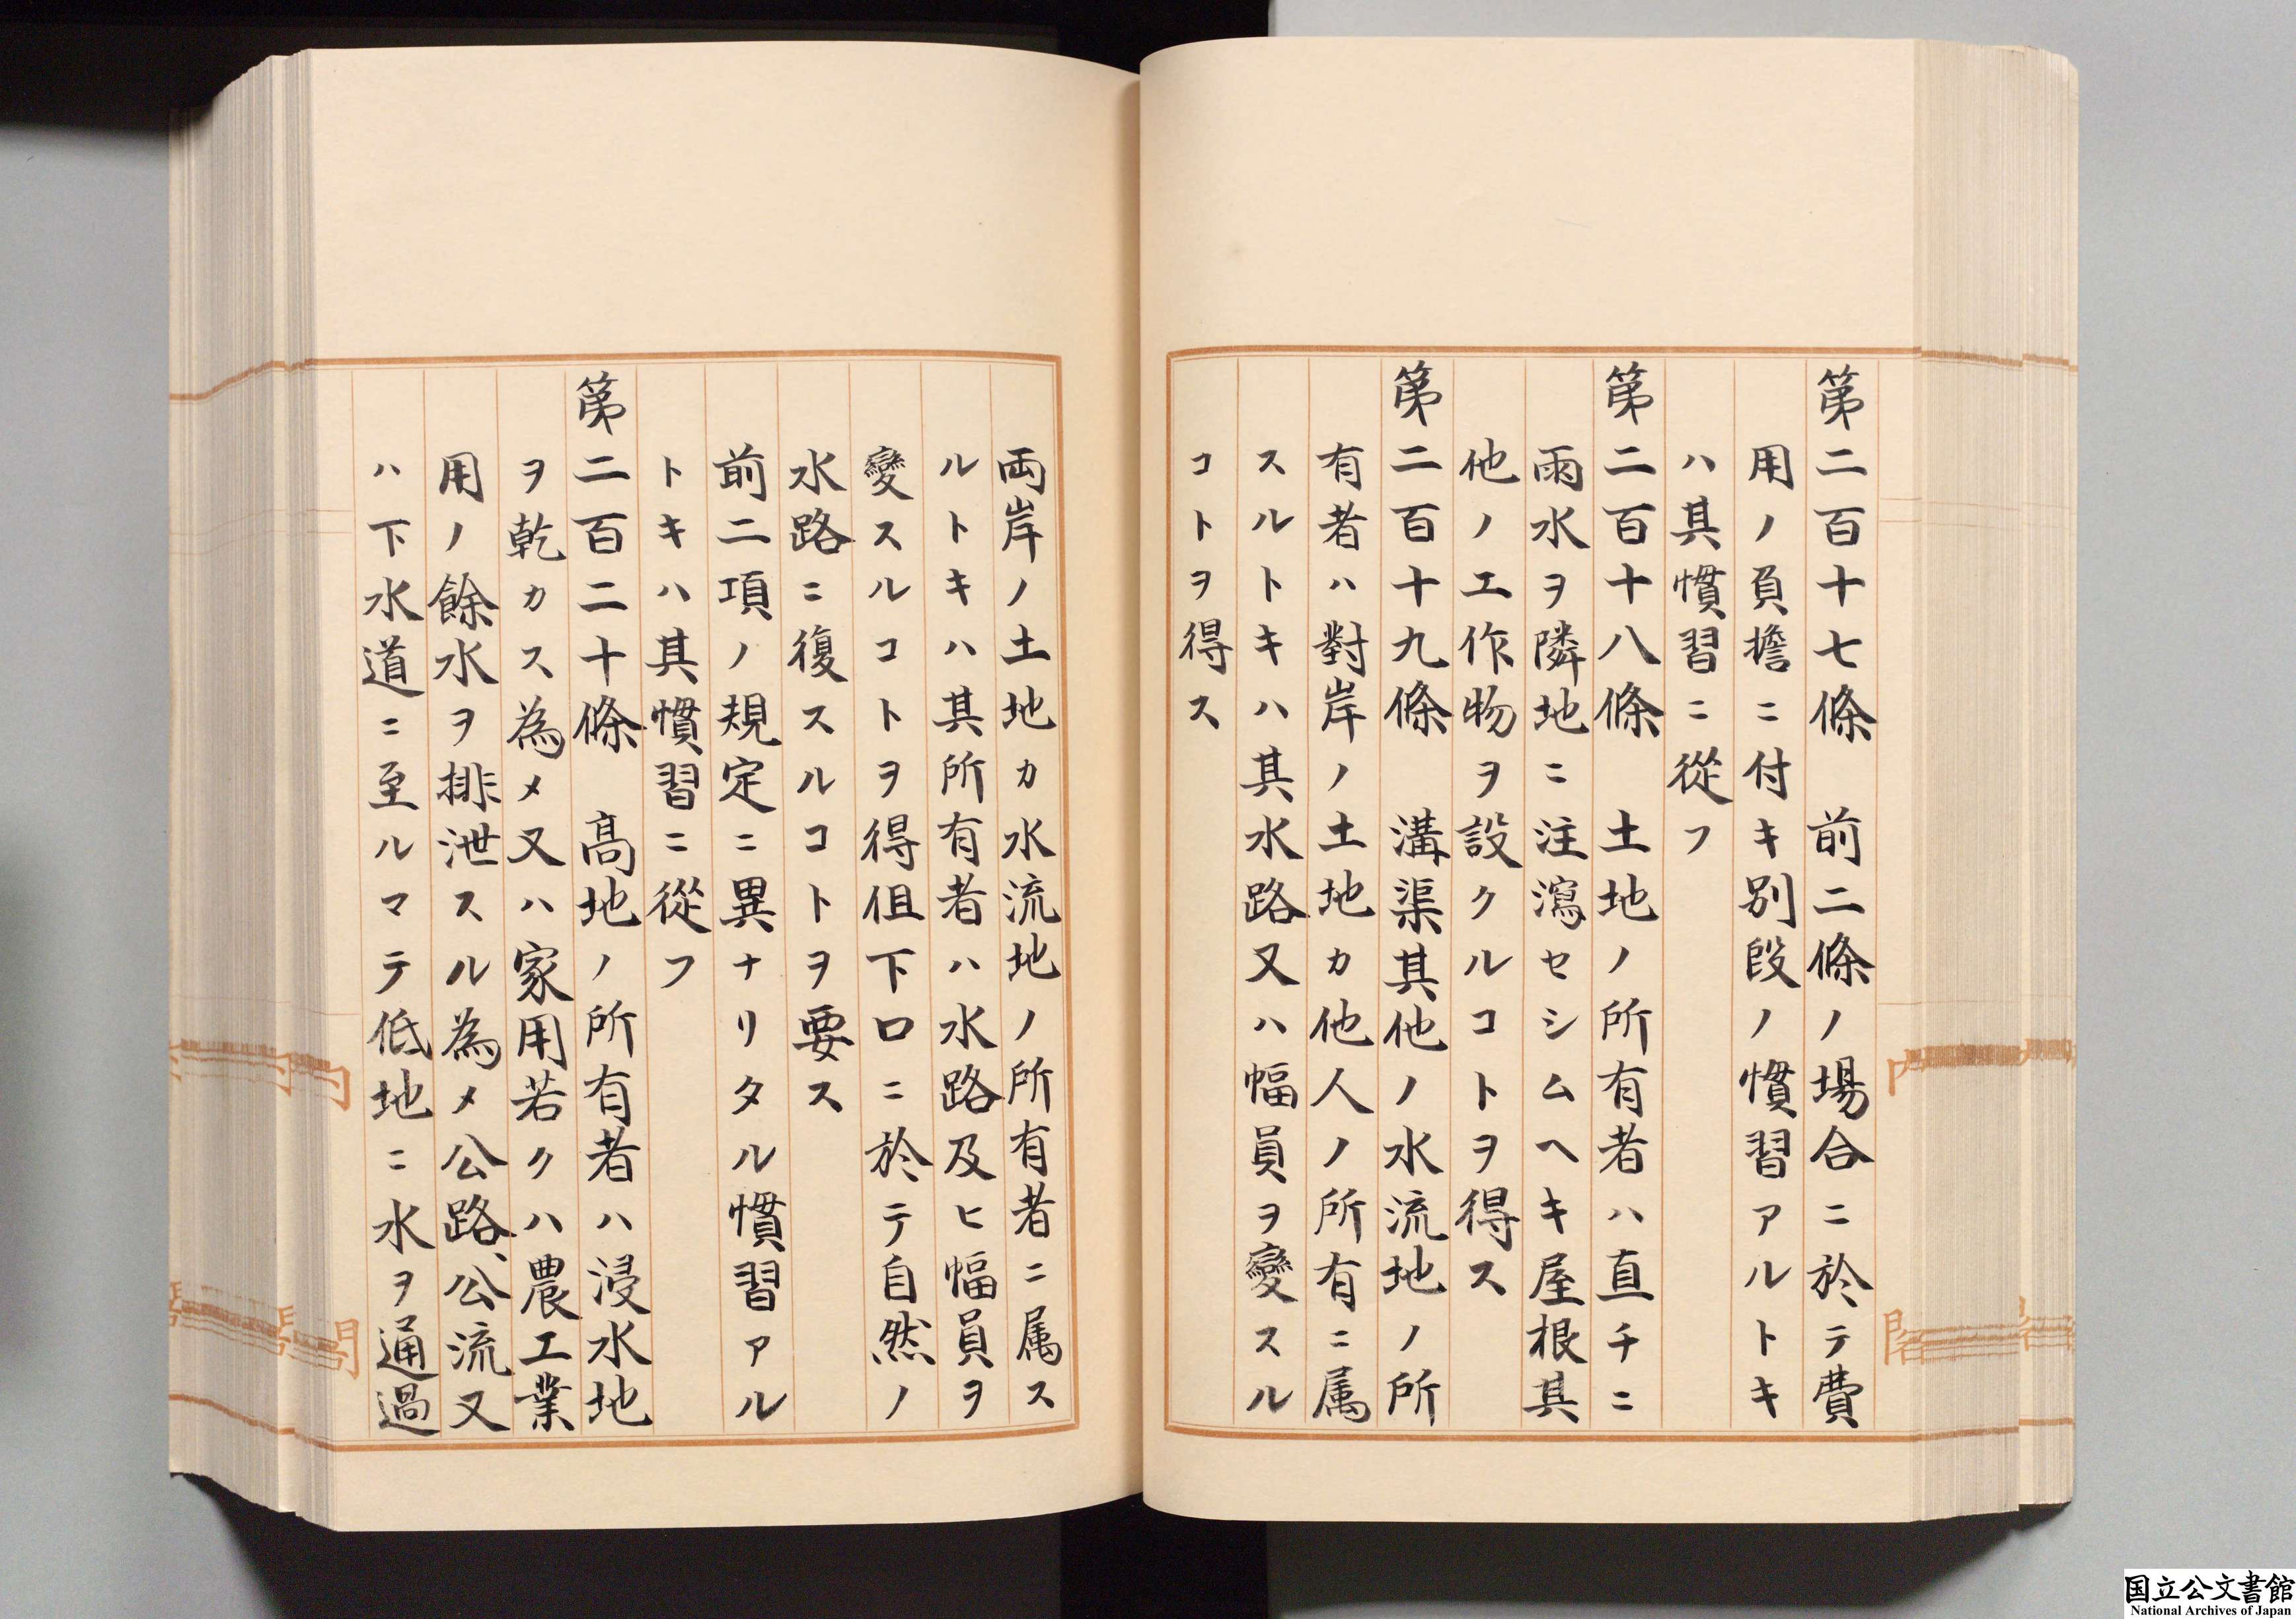 第二百十七條　前二條ノ場合ニ於テ費
用ノ負擔ニ付キ別段ノ慣習アルトキ
ハ其慣習ニ從フ
第二百十八條　土地ノ所有者ハ直チニ
雨水ヲ隣地ニ注瀉セシムヘキ屋根其
他ノ工作物ヲ設クルコトヲ得ス
第二百十九條　溝渠其他ノ水流地ノ所
有者ハ對岸ノ土地カ他人ノ所有ニ属
スルトキハ其水路又ハ幅員ヲ變スル
コトヲ得ス
両岸ノ土地カ水流地ノ所有者ニ属ス
ルトキハ其所有者ハ水路及ヒ幅員ヲ
變スルコトヲ得但下口ニ於テ自然ノ
水路ニ復スルコトヲ要ス
前二項ノ規定ニ異ナリタル慣習アル
トキハ其慣習ニ從フ
第二百二十條　高地ノ所有者ハ浸水地
ヲ乾カス為メ又ハ家用若クハ農工業
用ノ餘水ヲ排泄スル為メ公路、公流又
ハ下水道ニ至ルマテ低地ニ水ヲ通過
国立公文書館
National Archives of Japan